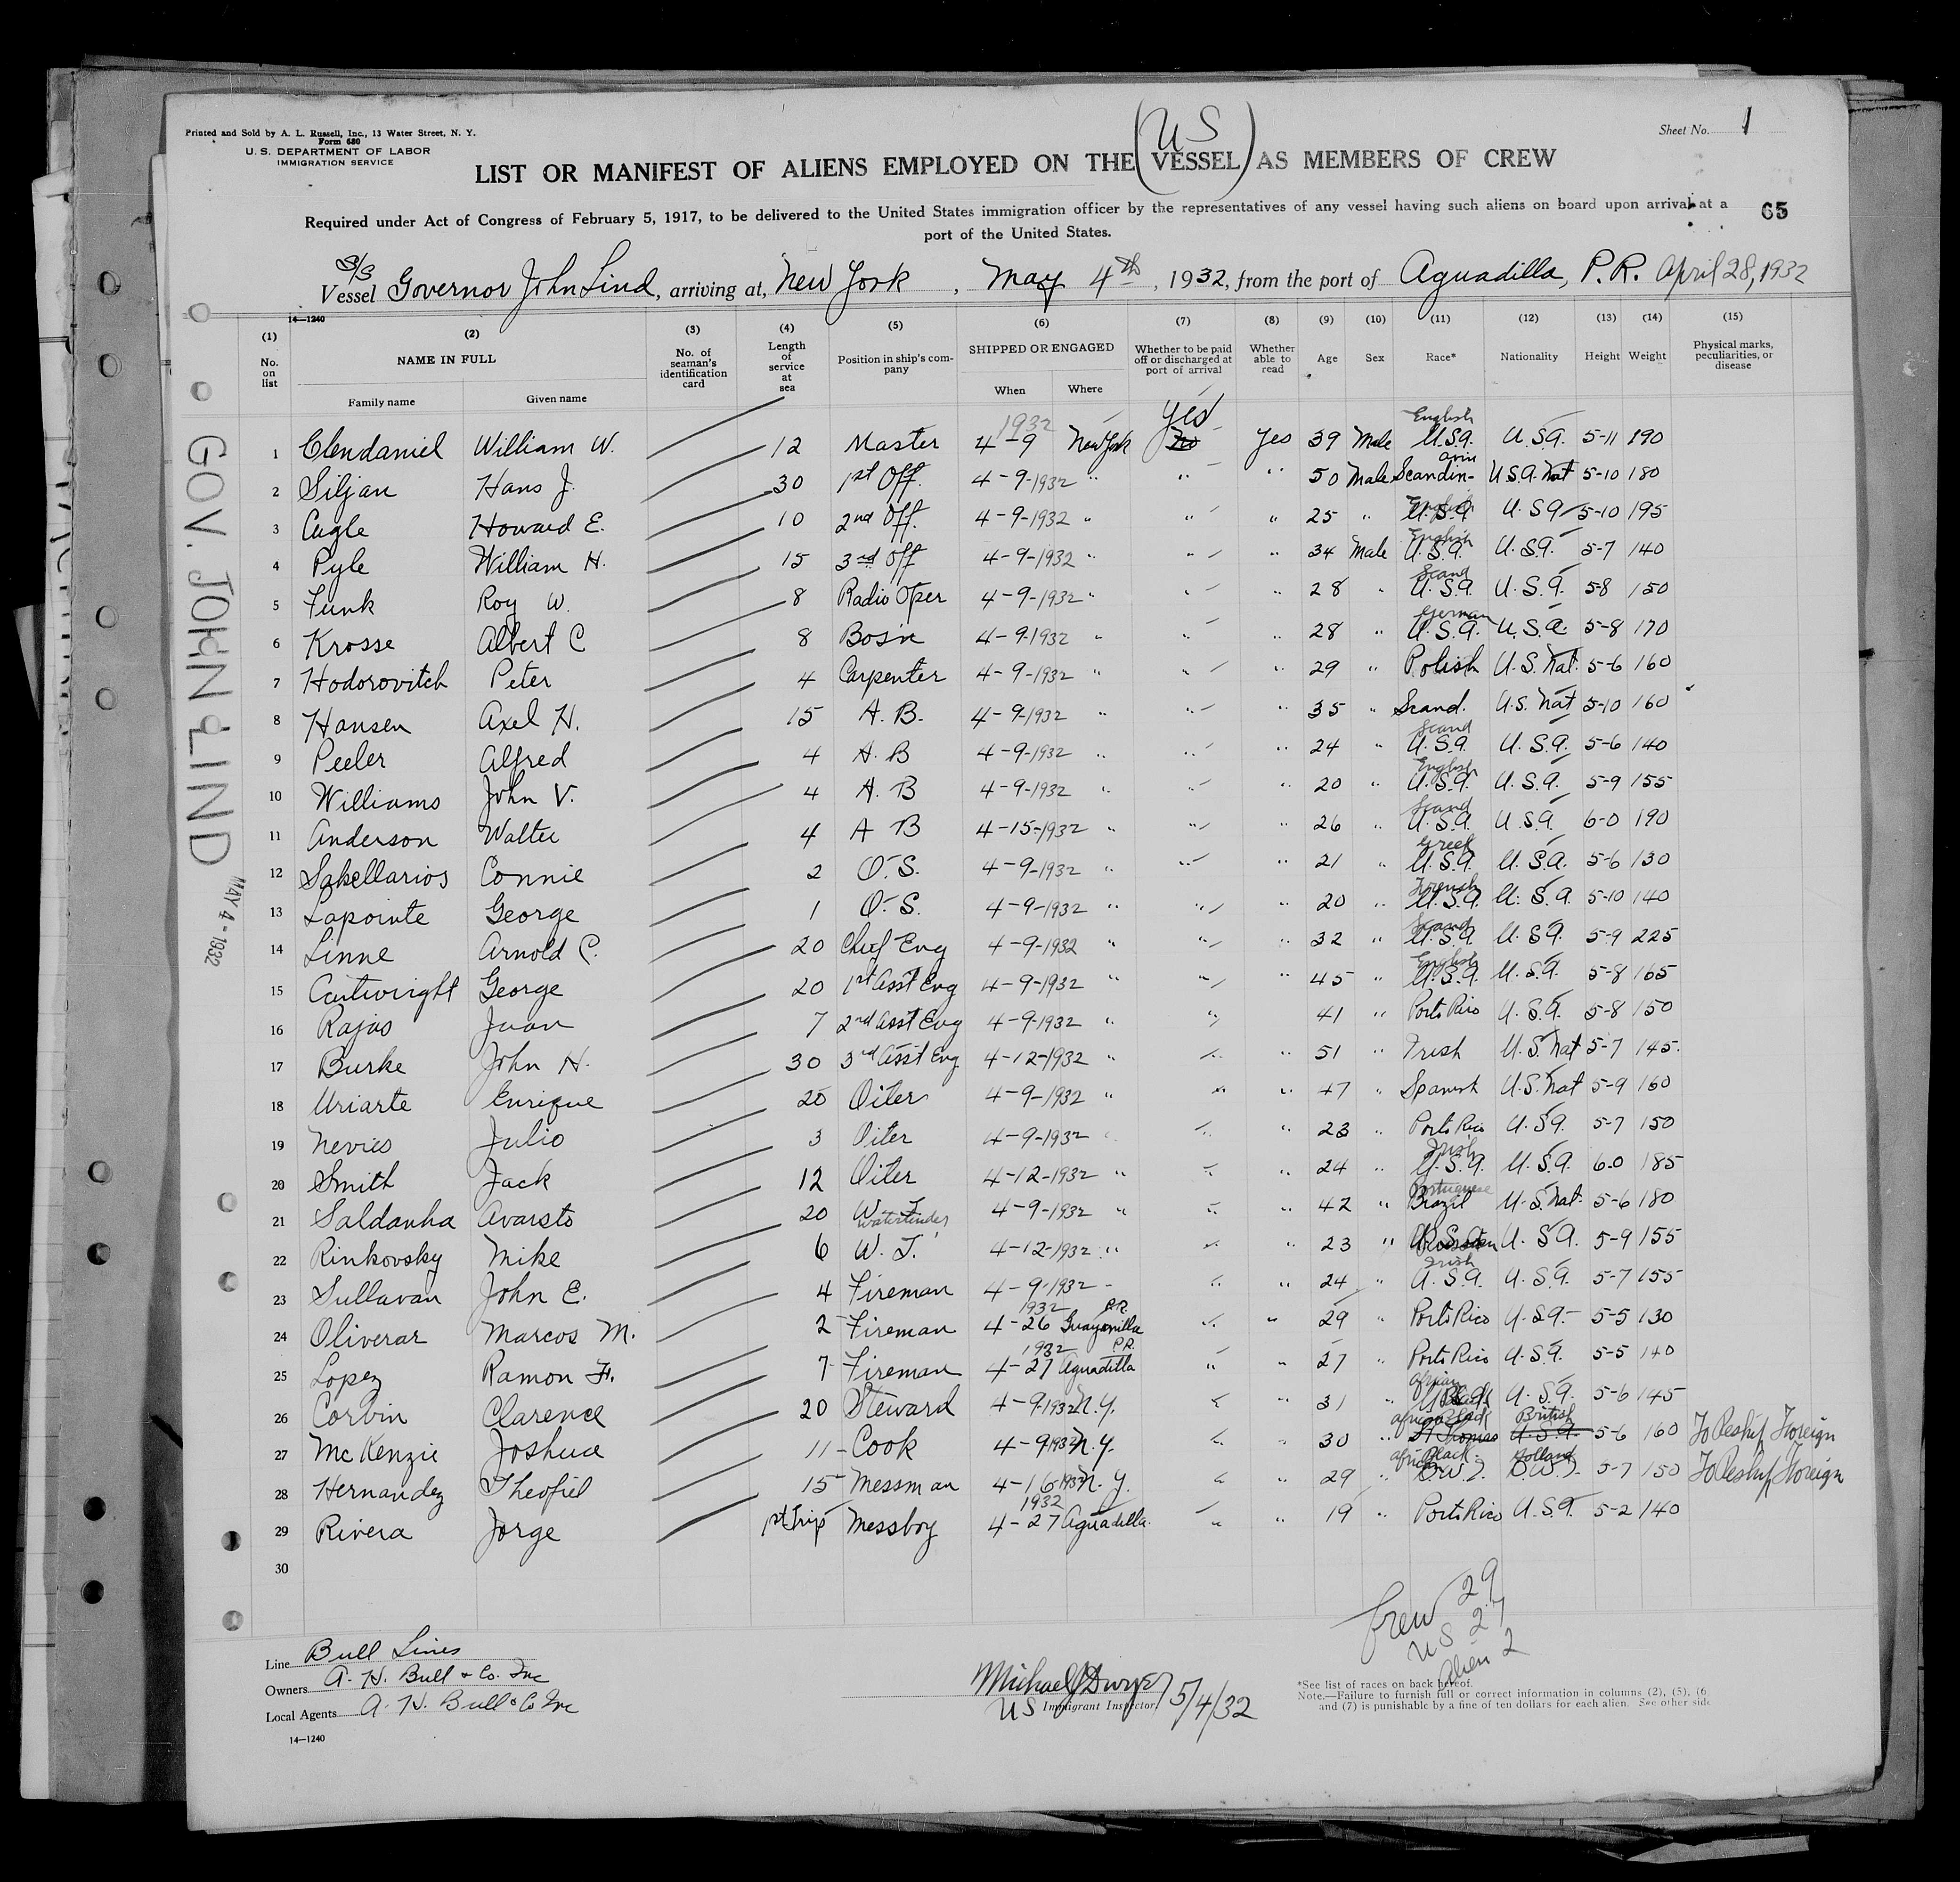 Printed and Sold by A. L. Russell, Inc., 13 Water Street, N. Y.
Form 680
U. S. DEPARTMENT OF LABOR
IMMIGRATION SERVICE
Sheet No. 1
US
LIST OR MANIFEST OF ALIENS EMPLOYED ON THE (VESSEL) AS MEMBERS OF CREW
Required under Act of Congress of February 5, 1917, to be delivered to the United States immigration officer by the representatives of any vessel having such aliens on board upon arrival at a
port of the United States.
65
S/S
Vessel Governor John Lind, arriving at, New York, May 4th, 1932, from the port of Aguadilla, P.R. April 28, 1932
14—1240
(1) (2) (3) (4) (5) (6) (7) (8) (9) (10) (11) (12) (13) (14) (15)
No. on list
NAME IN FULL
Family name
Given name
No. of seaman's identification card
Length of service at sea
Position in ship's company
SHIPPED OR ENGAGED
When
Where
Whether to be paid off or discharged at port of arrival
Whether able to read
Age
Sex
Race*
Nationality
Height
Weight
Physical marks, peculiarities, or disease
1932 yes English
1 Clendaniel William W. 12 Master 4-9 New York no Yes 39 Male U.S.A. U.S.A. 5-11 190
avin
2 Siljan Hans J. 30 1st Off. 4-9-1932 " " " 50 Male Scandin- U.S.A. Nat 5-10 180
3 Cagle Howard E. 10 2nd Off. 4-9-1932 " " " 25 " English U.S.A. U.S.A 5-10 195
4 Pyle William H. 15 3rd Off 4-9-1932 " " " 34 Male English U.S.A. U.S.A. 5-7 140
5 Funk Roy W. 8 Radio Oper 4-9-1932 " " " 28 " Scand U.S.A. U.S.A. 5-8 150
6 Krosse Albert C 8 Bosn 4-9-1932 " " " 28 " German U.S.A. U.S.A. 5-8 170
7 Hodorovitch Peter 4 Carpenter 4-9-1932 " " " 29 " Polish U.S. Nat. 5-6 160
8 Hansen Axel H. 15 A.B. 4-9-1932 " " " 35 " Scand. U.S. Nat 5-10 160
9 Peeler Alfred 4 A.B 4-9-1932 " " " 24 " Scand U.S.A. U.S.A. 5-6 140
10 Williams John V. 4 A.B 4-9-1932 " " " 20 " English U.S.A. U.S.A. 5-9 155
11 Anderson Walter 4 A B 4-15-1932 " " " 26 " Scand U.S.A. U.S.A. 6-0 190
12 Sakellarios Connie 2 O.S. 4-9-1932 " " " 21 " Greek U.S.A. U.S.A. 5-6 130
13 Lapointe George 1 O.S. 4-9-1932 " " " 20 " French U.S.A. U.S.A. 5-10 140
14 Linne Arnold C. 20 Chief Eng 4-9-1932 " " " 32 " Scand U.S.A. U.S.A. 5-9 225
15 Cartwright George 20 1st Asst Eng 4-9-1932 " " " 45 " English U.S.A. U.S.A. 5-8 165
16 Rajas Juan 7 2nd Asst Eng 4-9-1932 " " 41 " Porto Rico U.S.A. 5-8 150
17 Burke John H. 30 3rd Asst Eng 4-12-1932 " " " 51 " Irish U.S. Nat 5-7 145.
18 Uriarte Enrique 25 Oiler 4-9-1932 " " " 47 " Spanish U.S. Nat 5-9 160
19 Nevies Julio 3 Oiler 4-9-1932 " " 23 " Porto Rico U.S.A. 5-7 150
20 Smith Jack 12 Oiler 4-12-1932 " " " 24 " Irish U.S.A. U.S.A. 6-0 185
21 Saldanha Avaristo 20 W. T. watertender 4-9-1932 " " " 42 " Portuguese Brazil U.S. Nat. 5-6 180
22 Rinkovsky Mike 6 W. T. 4-12-1932 " " " 23 " U.S.A. 5-9 155
23 Sullavan John E. 4 Fireman 4-9-1932 - " " 24 " Irish U.S.A. U.S.A. 5-7 155
1932 P.R.
24 Oliverar Marcos M. 2 Fireman 4-26 Guayanilla " " 29 " Porto Rico U.S.A. 5-5 130
1932 P.R.
25 Lopez Ramon F. 7 Fireman 4-27 Aguadilla " " 27 " Porto Rico U.S.A. 5-5 140
26 Corbin Clarence 20 Steward 4-9-1932 N.Y. " " 31 " African U.S.A. 5-6 145
27 McKenzie Joshua 11 Cook 4-9-1932 N.Y. " " 30 " African Black St Thomas British U.S.A. 5-6 160 To Reship Foreign
28 Hernandez Theofiel 15 Messman 4-16-1932 N.Y. " " 29 " African Black D.W.I. Holland D.W.I. 5-7 150 To Reship Foreign
1932
29 Rivera Jorge 1st Trip Messboy 4-27 Aguadilla. " " 19 " Porto Rico U.S.A. 5-2 140
30
GOV. JOHN LIND
MAY 4 - 1932
Crew 29
US 27
Alien 2
Line Bull Lines
Owners A. H. Bull & Co. Inc
Local Agents A. H. Bull & Co Inc
14—1240
Michael J Dwyer 5/4/32
US Immigrant Inspector
*See list of races on back hereof.
Note.—Failure to furnish full or correct information in columns (2), (5), (6
and (7) is punishable by a fine of ten dollars for each alien. See other side